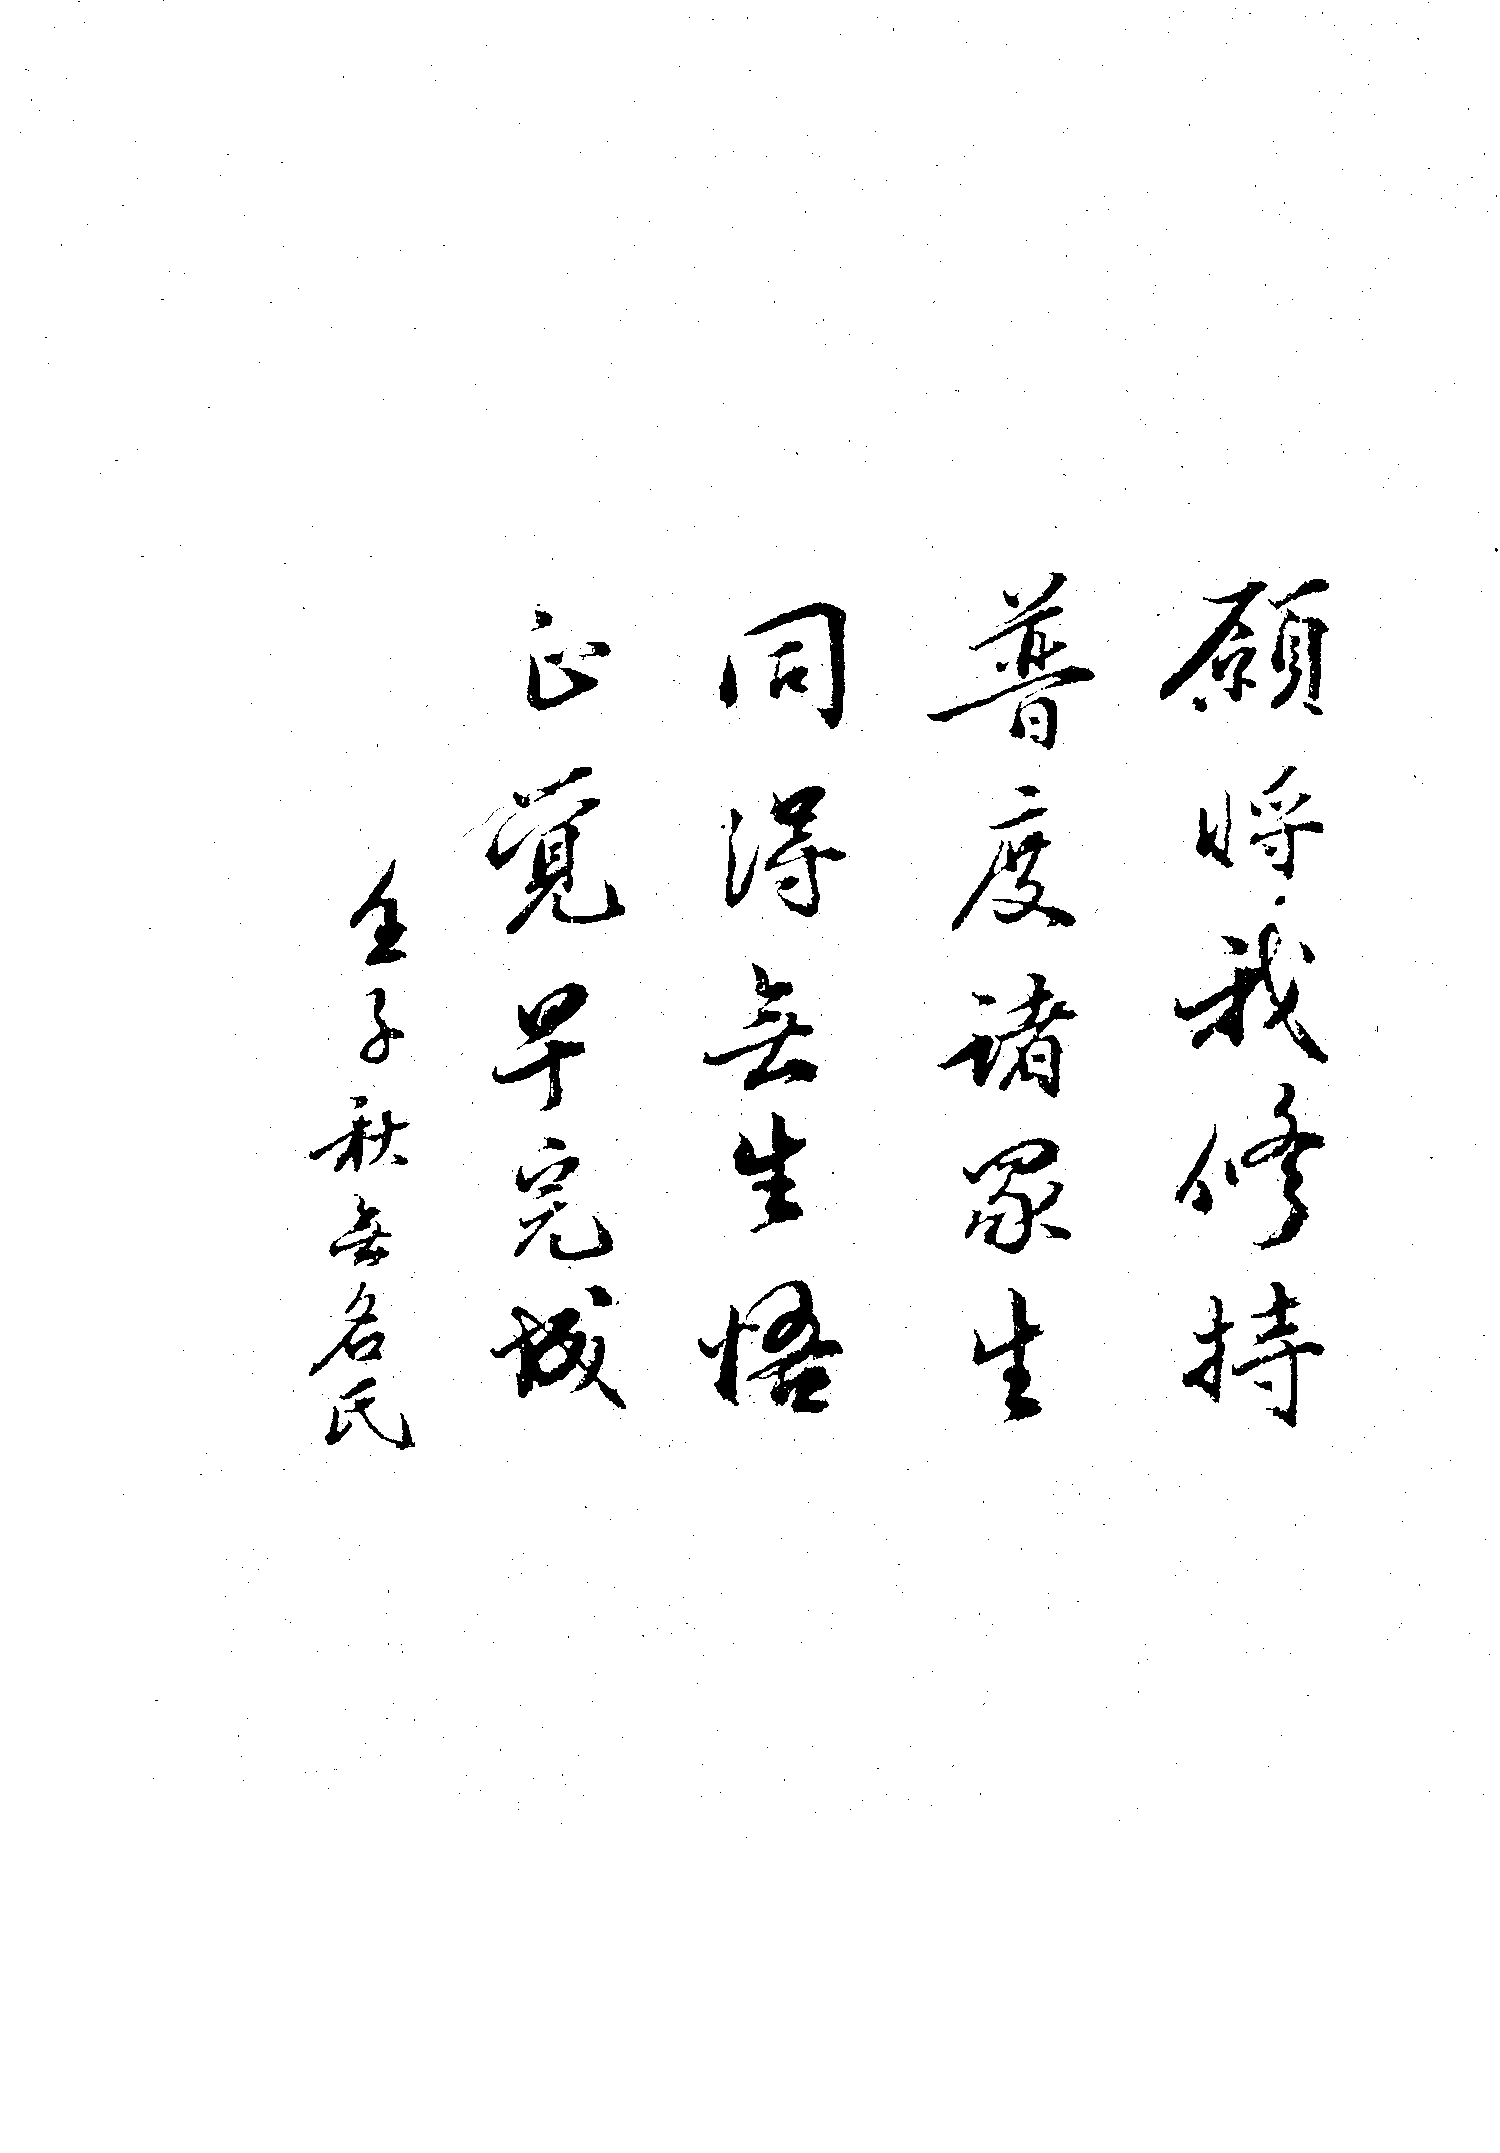 願將我修持
普度诸眾生
同得無生悟
正覺早完成
壬子秋無名氏